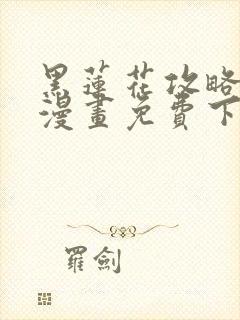 黑蓮花攻略
漫畫免費下
羅劍